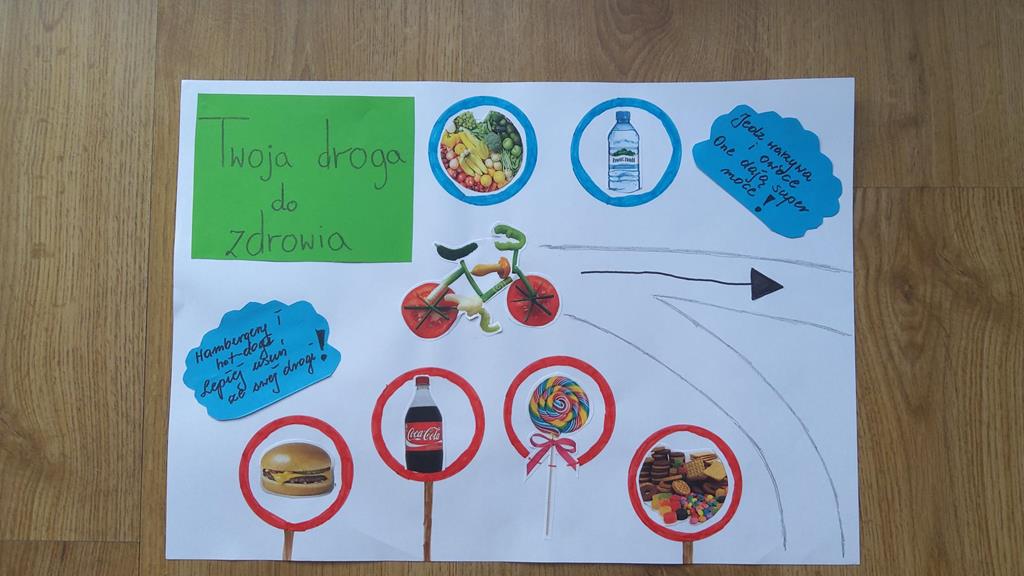 Twoja droga
do
zdrowia
Jedz warzywa
i owoce
One dają super
moce!
Hamburgery i
hot-dogi
Lepiej usuń
ze swej drogi!
Coca-Cola